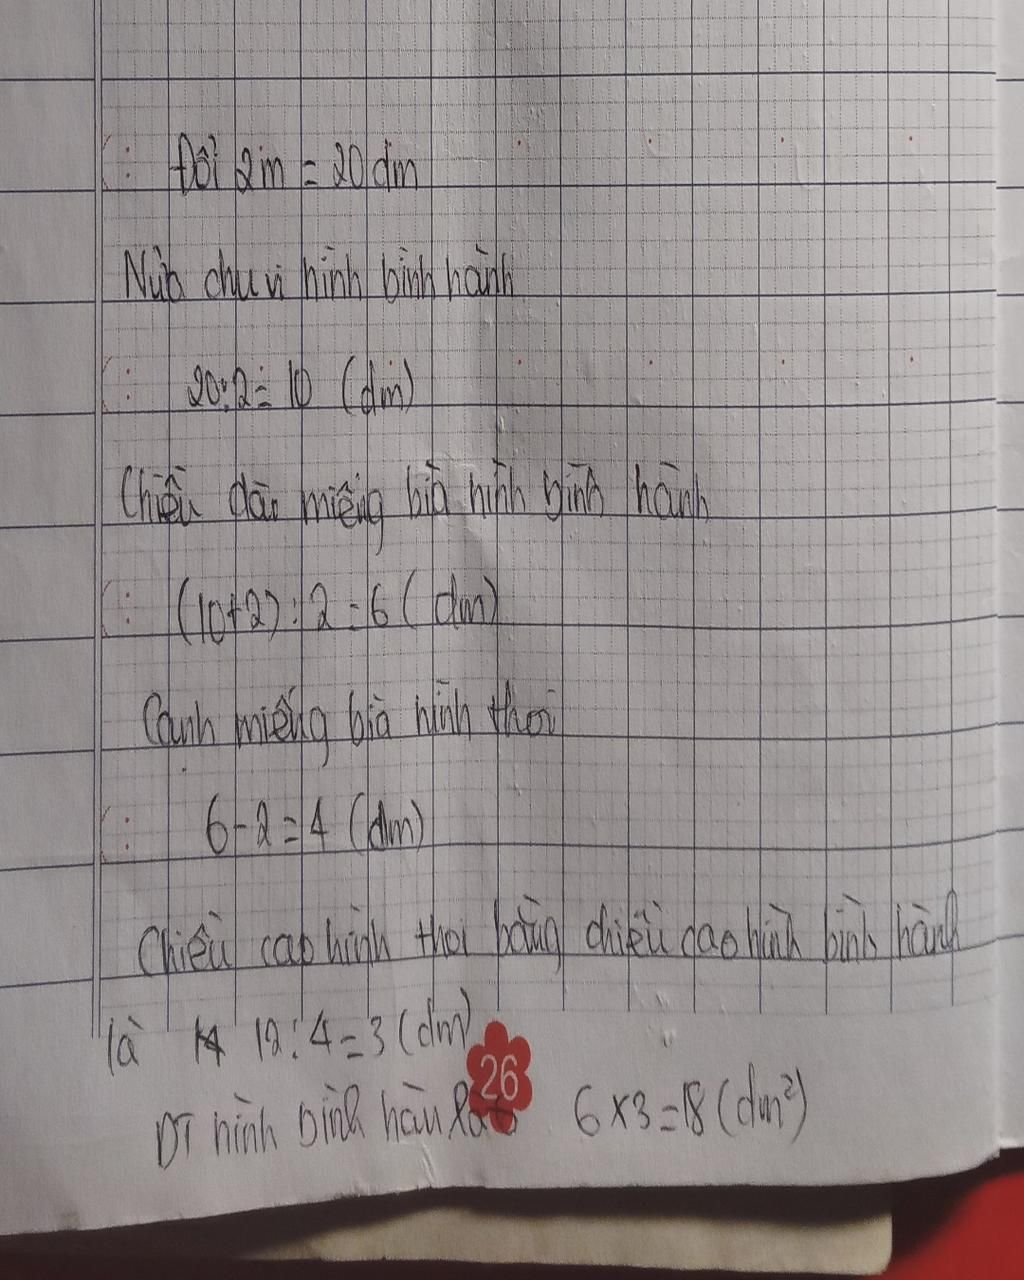 Đổi 2m = 20 dm
Nửa chu vi hình bình hành
20:2 = 10 (dm)
Chiều dài miếng bìa hình bình hành
(10+2) : 2 = 6 (dm)
Cạnh miếng bìa hình thoi
6-2 = 4 (dm)
Chiều cao hình thoi bằng chiều cao hình bình hành
là 12 : 4 = 3 (dm)
DT hình bình hành là 6 x 3 = 18 (dm²)
26